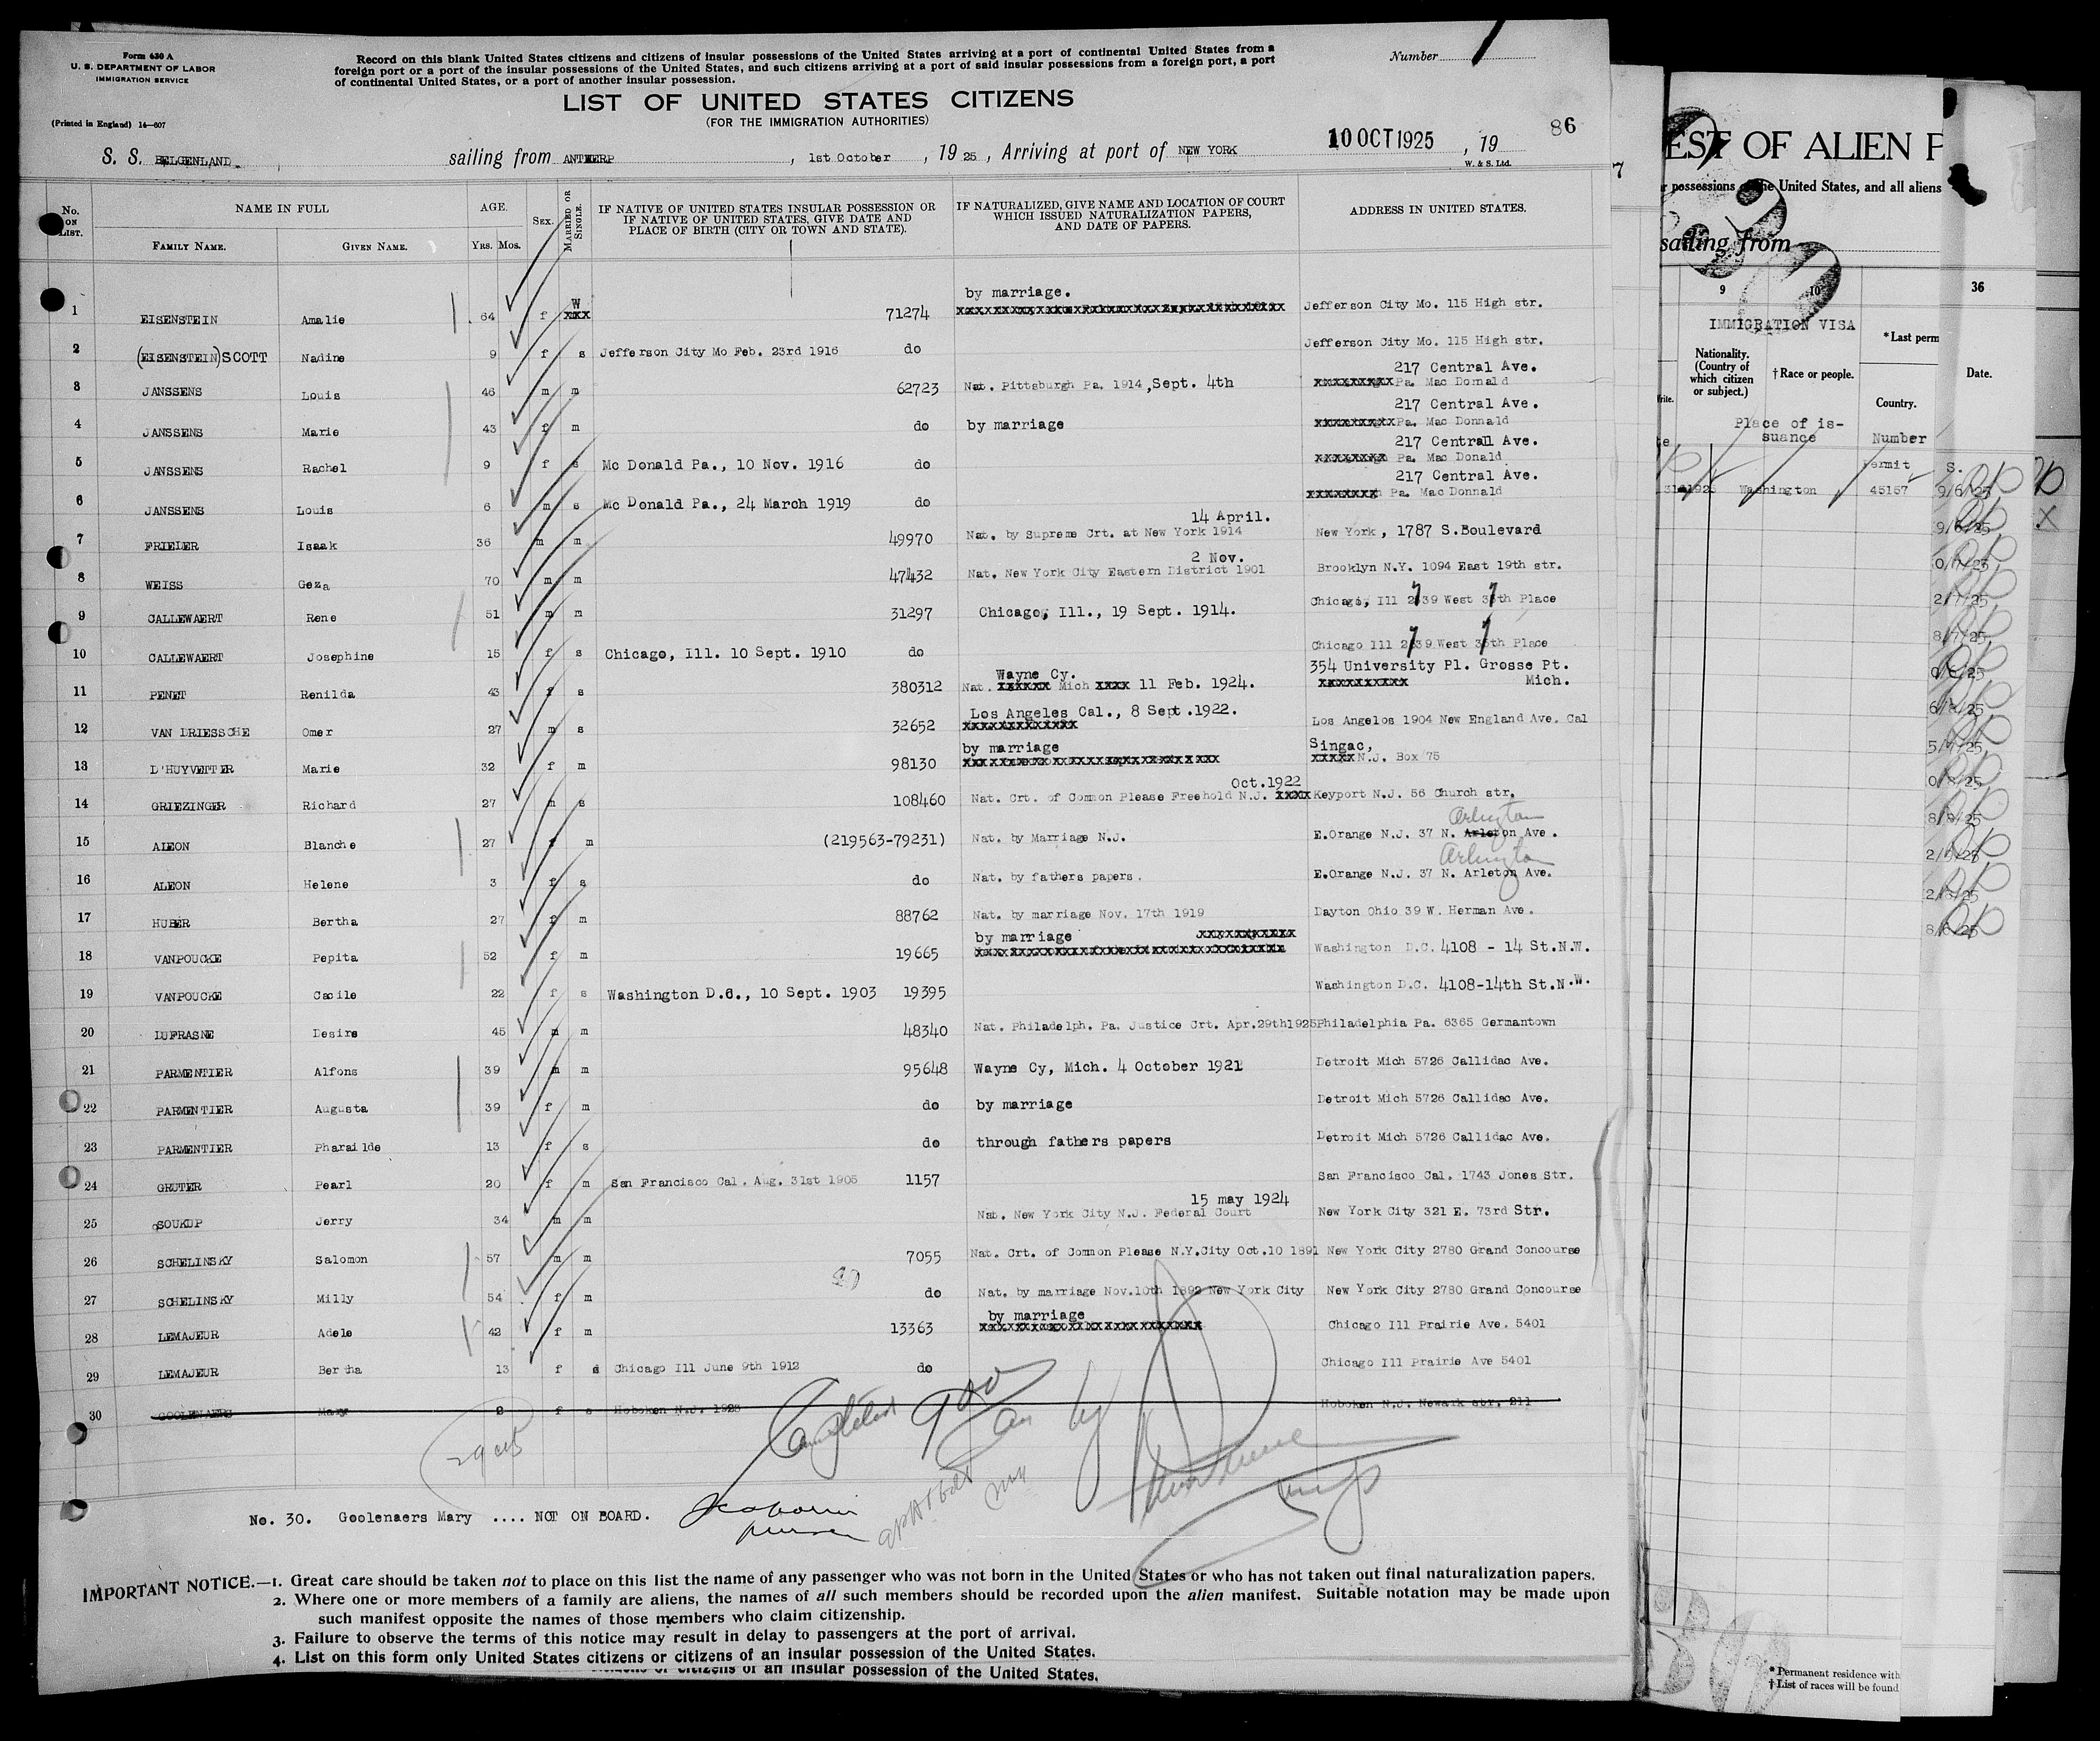 Form 630 A
U. S. DEPARTMENT OF LABOR
IMMIGRATION SERVICE
(Printed in England) 14—607
Record on this blank United States citizens and citizens of insular possessions of the United States arriving at a port of continental United States from a
foreign port or a port of the insular possessions of the United States, and such citizens arriving at a port of said insular possessions from a foreign port, a port
of continental United States, or a port of another insular possession.
Number
LIST OF UNITED STATES CITIZENS
(FOR THE IMMIGRATION AUTHORITIES)
86
S. S. BELGENLAND sailing from ANTWERP, 1st October, 1925, Arriving at port of NEW YORK 10 OCT 1925, 19
W. & S. Ltd.
No. ON LIST. NAME IN FULL FAMILY NAME. GIVEN NAME. AGE. YRS. MOS. SEX. MARRIED OR SINGLE. IF NATIVE OF UNITED STATES INSULAR POSSESSION OR IF NATIVE OF UNITED STATES, GIVE DATE AND PLACE OF BIRTH (CITY OR TOWN AND STATE). IF NATURALIZED, GIVE NAME AND LOCATION OF COURT WHICH ISSUED NATURALIZATION PAPERS, AND DATE OF PAPERS. ADDRESS IN UNITED STATES.
1 EISENSTEIN Amalie 64 f W xxx 71274 by marriage. Jefferson City Mo. 115 High str.
2 (EISENSTEIN)SCOTT Nadine 9 f s Jefferson City Mo Feb. 23rd 1916 do Jefferson City Mo. 115 High str.
3 JANSSENS Louis 46 m m 62723 Nat. Pittsburgh Pa. 1914, Sept. 4th 217 Central Ave. Pa. Mac Donald
4 JANSSENS Marie 43 f m do by marriage 217 Central Ave. Pa. Mac Donnald
5 JANSSENS Rachel 9 f s Mc Donald Pa., 10 Nov. 1916 do 217 Centrall Ave. Pa. Mac Donald
6 JANSSENS Louis 6 m s Mc Donald Pa., 24 March 1919 do 217 Central Ave. Pa. Mac Donnald
7 FRIELER Isaak 36 m m 49970 Nat. by Supreme Crt. at New York 1914 14 April. New York, 1787 S.Boulevard
8 WEISS Geza 70 m m 47432 Nat. New York City Eastern District 1901 2 Nov. Brooklyn N.Y. 1094 East 19th str.
9 CALLEWAERT Rene 51 m m 31297 Chicago, Ill., 19 Sept. 1914. Chicago, Ill 2739 West 37th Place
10 CALLEWAERT Josephine 15 f s Chicago, Ill. 10 Sept. 1910 do Chicago Ill 2739 West 37th Place
11 PENET Renilda 43 f s 380312 Nat. Wayne Cy. Mich 11 Feb. 1924. 354 University Pl. Grosse Pt. Mich.
12 VAN DRIESSCHE Omer 27 m s 32652 Los Angeles Cal., 8 Sept.1922. Los Angelos 1904 New England Ave. Cal
13 D'HUYVETTER Marie 32 f m 98130 by marriage Singac, N.J. Box 75
14 GRIEZINGER Richard 27 m s 108460 Nat. Crt. of Common Please Freehold N.J. Oct.1922 Keyport N.J. 56 Church str.
15 ALEON Blanche 27 f m (219563-79231) Nat. by Marriage N.J. E.Orange N.J. 37 N. Arleton Ave. Arlington
16 ALEON Helene 3 f s do Nat. by fathers papers. E.Orange N.J. 37 N. Arleton Ave. Arlington
17 HUBER Bertha 27 f m 88762 Nat. by marriage Nov. 17th 1919 Dayton Ohio 39 W. Herman Ave.
18 VANPOUCKE Pepita 52 f m 19665 by marriage Washington D.C. 4108 - 14 St.N.W.
19 VANPOUCKE Cecile 22 f s Washington D.C., 10 Sept. 1903 19395 Washington D.C. 4108-14th St.N.W.
20 DUFRASNE Desire 45 m m 48340 Nat. Philadelph. Pa. Justice Crt. Apr.29th1925 Philadelphia Pa. 6365 Germantown
21 PARMENTIER Alfons 39 m m 95648 Wayne Cy, Mich. 4 October 1921 Detroit Mich 5726 Callidac Ave.
22 PARMENTIER Augusta 39 f m do by marriage Detroit Mich 5726 Callidac Ave.
23 PARMENTIER Pharailde 13 f s do through fathers papers Detroit Mich 5726 Callidac Ave.
24 GRUTER Pearl 20 f m San Francisco Cal. Aug. 31st 1905 1157 San Francisco Cal. 1743 Jones Str.
25 SOUKUP Jerry 34 m m Nat. New York City N.J. Federal Court 15 may 1924 New York City 321 E. 73rd Str.
26 SCHELINSKY Salomon 57 m m 7055 Nat. Crt. of Common Please N.Y.City Oct.10 1891 New York City 2780 Grand Concourse
27 SCHELINSKY Milly 54 f m do Nat. by marriage Nov.10th 1892 New York City New York City 2780 Grand Concourse
28 LEMAJEUR Adele 42 f m 13363 by marriage Chicago Ill Prairie Ave. 5401
29 LEMAJEUR Bertha 13 f s Chicago Ill June 9th 1912 do Chicago Ill Prairie Ave 5401
30 GOOLENAERS Mary 2 f s Hoboken N.J. 1923 Hoboken N.J. Newark str. 211
No. 30. Goolenaers Mary .... NOT ON BOARD.
IMPORTANT NOTICE.—1. Great care should be taken not to place on this list the name of any passenger who was not born in the United States or who has not taken out final naturalization papers.
2. Where one or more members of a family are aliens, the names of all such members should be recorded upon the alien manifest. Suitable notation may be made upon
such manifest opposite the names of those members who claim citizenship.
3. Failure to observe the terms of this notice may result in delay to passengers at the port of arrival.
4. List on this form only United States citizens or citizens of an insular possession of the United States.
citizens of an insular possession of the United States.
EST OF ALIEN P
possessions of the United States, and all aliens
sailing from
9 10 36
IMMIGRATION VISA
*Last perm
Nationality. (Country of which citizen or subject.)
†Race or people.
Country.
Date.
Place of issuance
Number
Permit
Washington 45157
9/6/25
* Permanent residence with
† List of races will be found